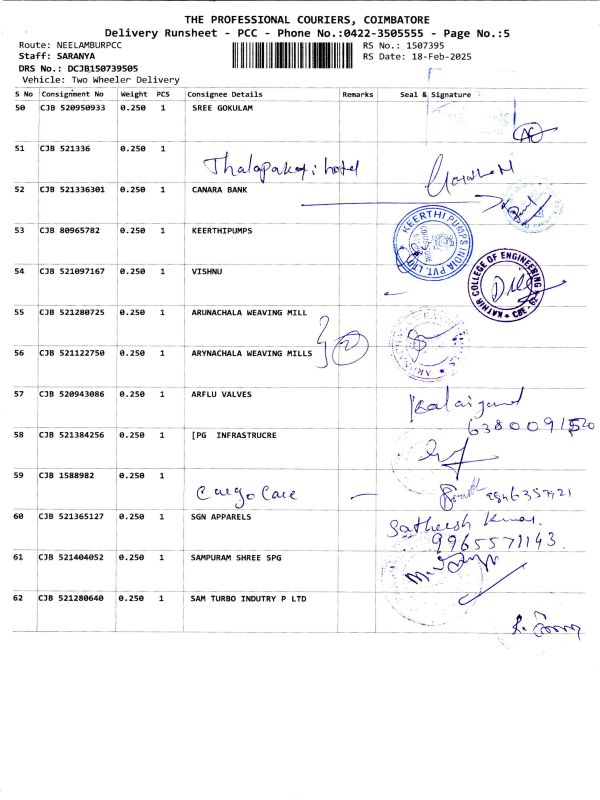 THE PROFESSIONAL COURIERS, COIMBATORE
Delivery Runsheet - PCC - Phone No.:0422-3505555 - Page No.:5
Route: NEELAMBURPCC
RS No.: 1507395
Staff: SARANYA
RS Date: 18-Feb-2025
DRS No.: DCJB150739505
Vehicle: Two Wheeler Delivery
S No Consignment No Weight PCS Consignee Details Remarks Seal & Signature
50 CJB 520950933 0.250 1 SREE GOKULAM
51 CJB 521336 0.250 1
Thalapakati hotel
52 CJB 521336301 0.250 1 CANARA BANK
53 CJB 80965782 0.250 1 KEERTHIPUMPS
KEERTHI PUMPS INDIA PVT. LTD
54 CJB 521097167 0.250 1 VISHNU
KATHIR COLLEGE OF ENGINEERING ★ CBE - 62 ★
55 CJB 521280725 0.250 1 ARUNACHALA WEAVING MILL
2
56 CJB 521122750 0.250 1 ARYNACHALA WEAVING MILLS
57 CJB 520943086 0.250 1 ARFLU VALVES
58 CJB 521384256 0.250 1 [PG INFRASTRUCRE
59 CJB 1588982 0.250 1
Cargo Care
60 CJB 521365127 0.250 1 SGN APPARELS
Satheesh Kumar.
9965571143.
61 CJB 521404052 0.250 1 SAMPURAM SHREE SPG
62 CJB 521280640 0.250 1 SAM TURBO INDUTRY P LTD